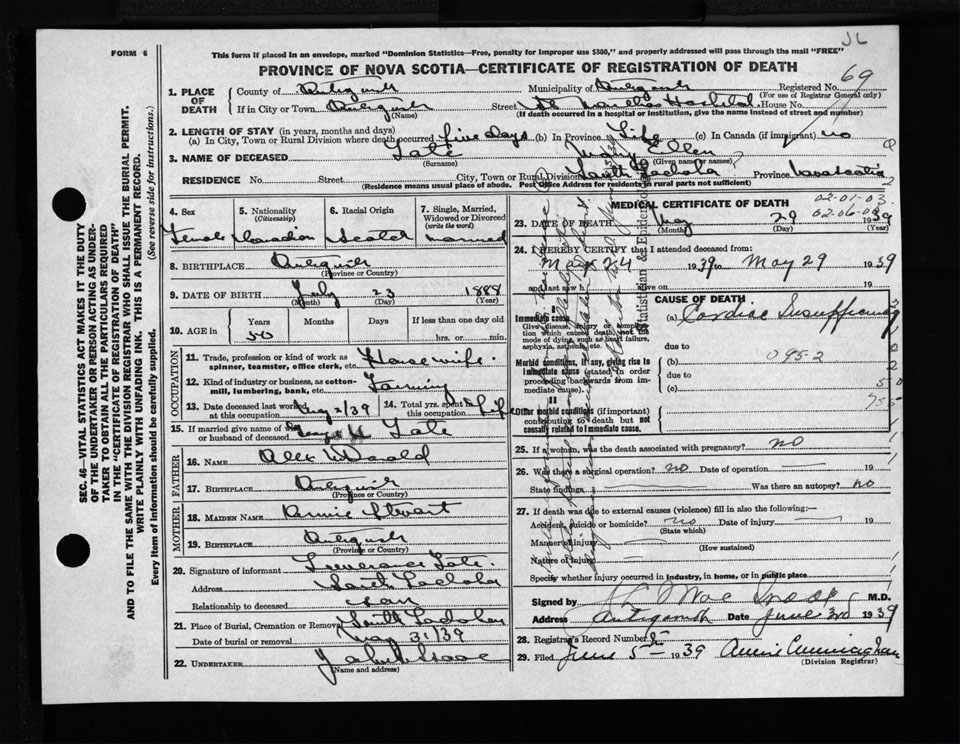 JL
FORM 6
This form if placed in an envelope, marked "Dominion Statistics—Free, penalty for improper use $300," and properly addressed will pass through the mail "FREE"
PROVINCE OF NOVA SCOTIA—CERTIFICATE OF REGISTRATION OF DEATH
69
1. PLACE OF DEATH
County of Antigonish Municipality of Antigonish Registered No.
(For use of Registrar General only)
If in City or Town Antigonish Street St Marthas Hospital House No.
(Name) (If death occurred in a hospital or institution, give the name instead of street and number)
2. LENGTH OF STAY (in years, months and days)
(a) In City, Town or Rural Division where death occurred five days (b) In Province Life (c) In Canada (if immigrant) no
3. NAME OF DECEASED Tate Mary Ellen
(Surname) (Given or names)
RESIDENCE No. Street City, Town or Rural Division South Lochaber Province Nova Scotia
(Residence means usual place of abode. Post Office Address for residents in rural parts not sufficient)
4. Sex Female
5. Nationality (Citizenship) Canadian
6. Racial Origin Scotch
7. Single, Married, Widowed or Divorced (write the word) married
8. BIRTHPLACE Antigonish
(Province or Country)
9. DATE OF BIRTH July 23 1888
(Month) (Day) (Year)
10. AGE in Years Months Days If less than one day
50 hrs. or min.
OCCUPATION
11. Trade, profession or kind of work as spinner, teamster, office clerk, etc. Housewife.
12. Kind of industry or business, as cotton-mill, lumbering, bank, etc. Farming
13. Date deceased last worked at this occupation 2/39
14. Total yrs. spent in this occupation Life
15. If married give name of wife or husband of deceased Tate
FATHER
16. NAME Alex
17. BIRTHPLACE Antigonish
(Province or Country)
MOTHER
18. MAIDEN NAME Annie Stewart
19. BIRTHPLACE Antigonish
(Province or Country)
20. Signature of informant Tate.
Address South Lochaber
Relationship to deceased son
21. Place of Burial, Cremation or Removal South Lochaber
Date of burial or removal May 31/39
22. UNDERTAKER
(Name and address)
SEC. 46—VITAL STATISTICS ACT MAKES IT THE DUTY
OF THE UNDERTAKER OR PERSON ACTING AS UNDER-
TAKER TO OBTAIN ALL THE PARTICULARS REQUIRED
IN THE "CERTIFICATE OF REGISTRATION OF DEATH"
AND TO FILE THE SAME WITH THE DIVISION REGISTRAR WHO SHALL ISSUE THE BURIAL PERMIT.
WRITE PLAINLY WITH UNFADING INK. THIS IS A PERMANENT RECORD.
Every item of information should be carefully supplied. (See reverse side for instructions.)
MEDICAL CERTIFICATE OF DEATH
02-01-03
23. DATE OF DEATH May 29 1939
(Month) (Day) (Year)
24. I HEREBY CERTIFY that I attended deceased from:
May 24 1939 to May 29 1939
and last saw h alive on 19
CAUSE OF DEATH
Immediate cause
Give disease, injury or complication which caused death, not the mode of dying, such as heart failure, asphyxia, asthenia, etc.
(a) Cardiac Insufficiency
due to
Morbid conditions, if any, giving rise to immediate cause (stated in order proceeding backwards from immediate cause).
(b) 095-2
due to
(c)
II
Other morbid conditions (if important) contributing to death but not causally related to immediate cause.
25. If a woman, was the death associated with pregnancy? no
26. Was there a surgical operation? no Date of operation 19
State findings Was there an autopsy? no
27. If death was due to external causes (violence) fill in also the following:—
Accident, suicide or homicide? no Date of injury 19
(State which)
Manner of injury
(How sustained)
Nature of injury
Specify whether injury occurred in industry, in home, or in public place
Signed by M.D.
Address Antigonish Date June 3rd 1939
28. Registrar's Record Number
29. Filed June 5th 1939 Annie Cunningham
(Division Registrar)